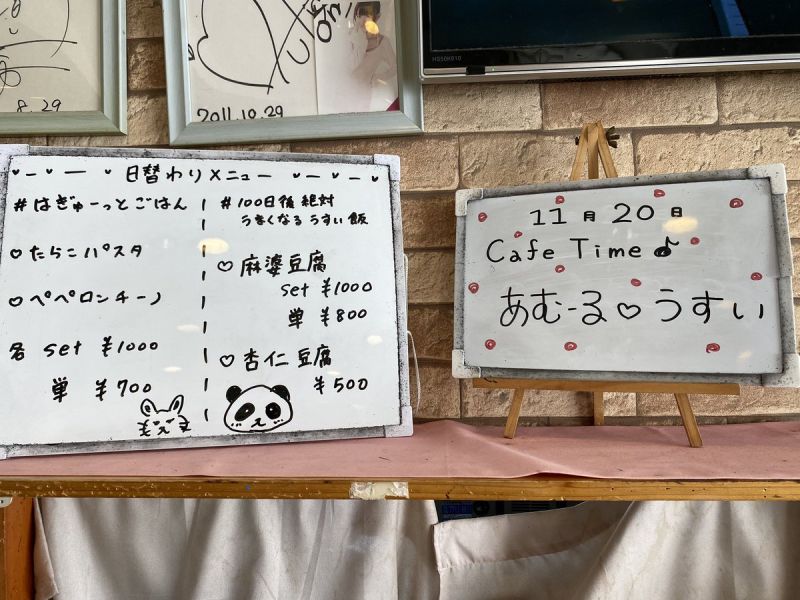 8.29
2011.10.29
HS50K610
日替わりメニュー
#はぎゅーっとごはん
♡たらこパスタ
♡ペペロンチーノ
各 set ¥1000
単 ¥700
#100日後絶対
うまくなるうすい飯
♡麻婆豆腐
set ¥1000
単 ¥800
♡杏仁豆腐
¥500
11月20日
Cafe Time♪
あむーる♡うすい